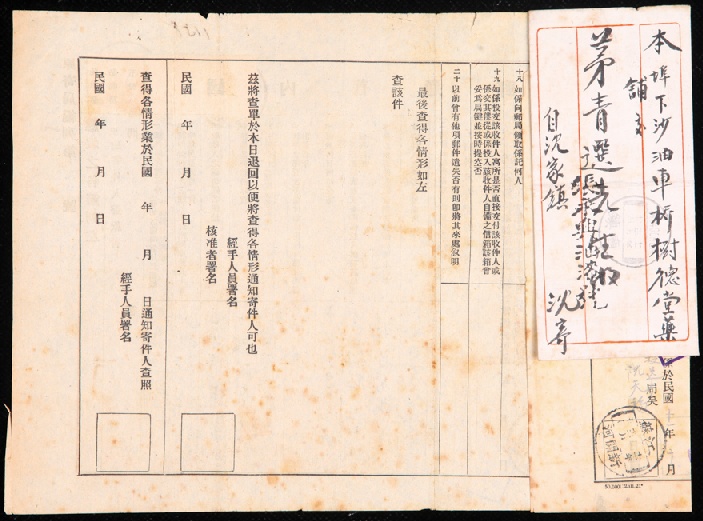 本埠下沙油車橋樹德堂藥
舖交
茅青選先生收
自沈家鎮
沈寄
於民國 年 月
十八 如係向郵局領取係記何人
十九 如係投交該收件人寓所是否直接交付該收件人或
係交其僕從或係投入該收件人自備之信箱該箱曾
妥為局鎖並按時提交否
二十 以前曾有他項郵件遺失否有則即將其來處叙明
最後查得各情形如左
查該件
茲將查單於本日退回以便將查得各情形通知寄件人可也
經手人員署名
核准者署名
民國 年 月 日
查得各情形業於民國 年 月 日通知寄件人查照
經手人員署名
民國 年 月 日